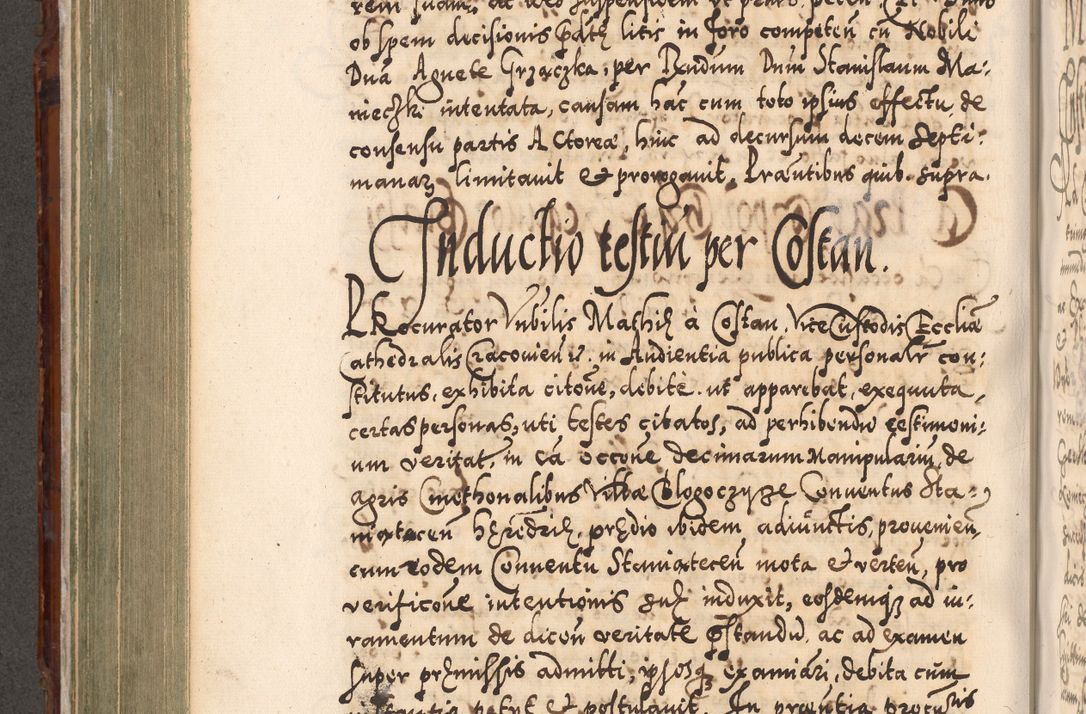 ob spem decisionis pdtę litis in foro competeñ cũ Nobili
Dnã Agnete Grzączka, per Rndum Dnm̃ Stanislaum Ma:
niecżki intentata, causam hãc cum toto ipsius effectu, de
consensu partis Actoreæ, hinc ad decursum decem septi:
manaꝝ limitauit & prorogauit. Prãntibus quib. supra.
Inductio testiũ per Costan.
Procurator Nobilis Mathię à Costan. ViceCustodis Eccliæ
Cathedralis Cracovieñ in Audientia publica personalr̃ con:
stitutus, exhibita citoñe, debite. ut apparebat, exequuta,
certas personas, uti testes citatos, ad perhibendũ testimoni:
um veritat, in cã occoñe decimarum Manipulariũ, de
agris Cmethonalibus Villæ Blogoczycze Conventus Sta:
niąteceñ hęredrię, prędio ibidem, adiũnctis, provenieñ,
cum eodem Conventu Staniąteceñ mota & verteñ, pro
verificoñe intentionis suę induxit, eosdemqꝫ ad iu:
ramentum de diceñ veritate pstandũ. ac ad examen
super pręmissis admitti, ipsosqꝫ examiãri, debita cum
instantia petyt & postulavit. In prẽntia procuris